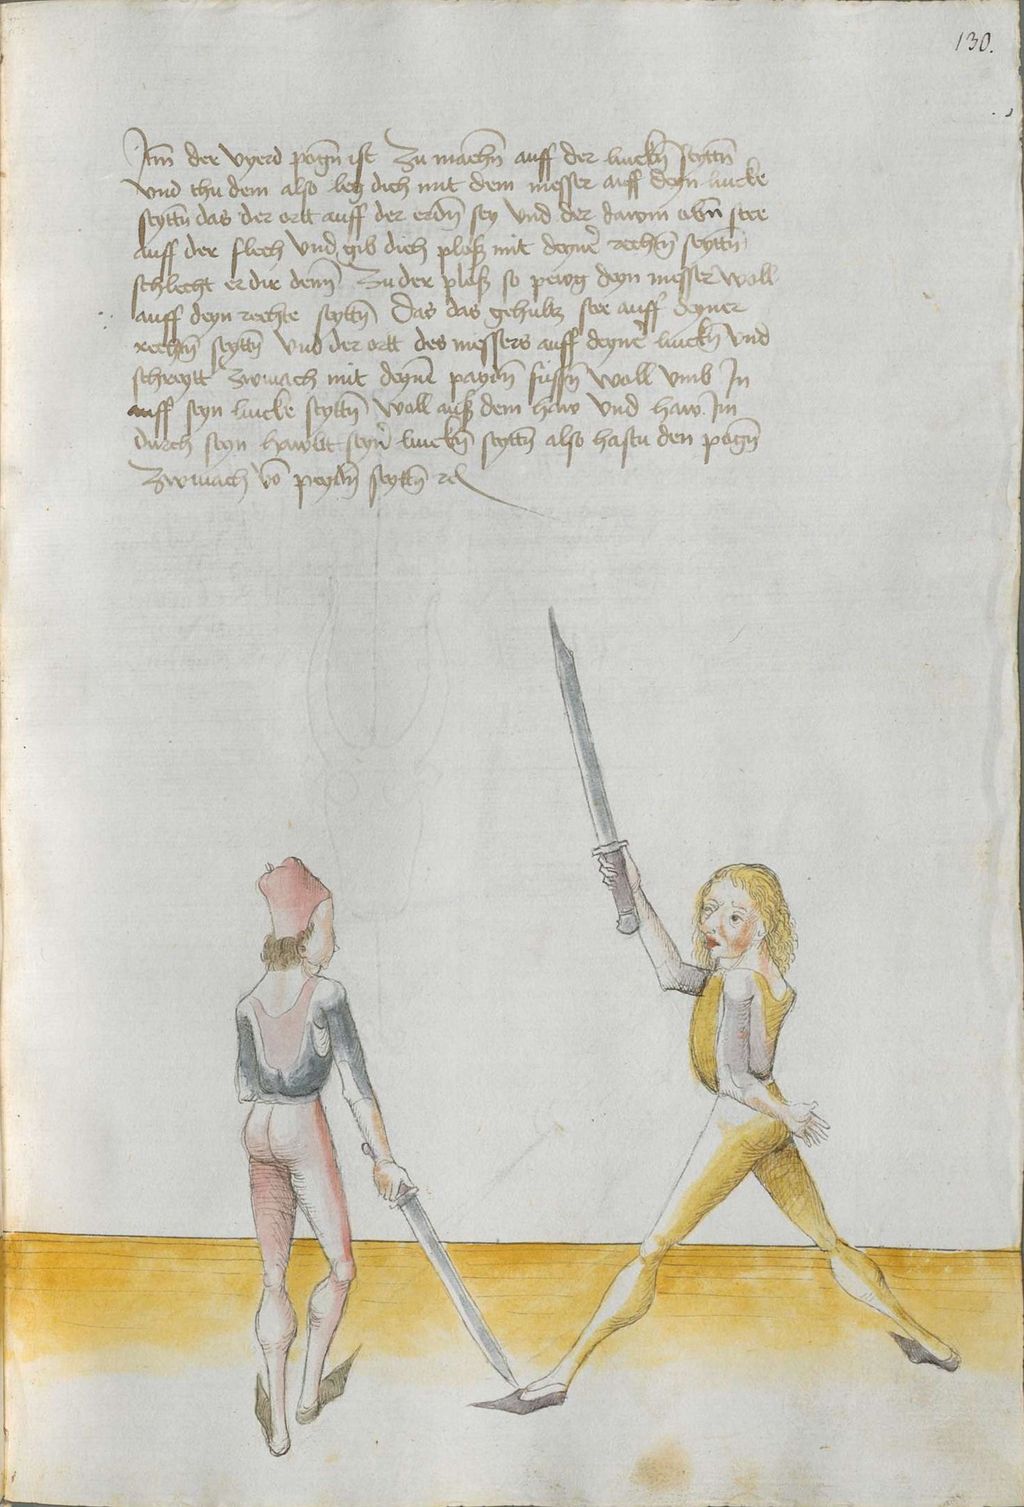 130.
Itm̄ der vyerd pogn̄ ist Zu machn̄ auff der linckn̄ seyttn̄
vnd thu dem also leg dich mit dem messer auff deyn lincke
seyttn̄ das der ortt auff der erdn̄ sey vnd der dawm obn̄ stee
auff der flech vnd gib dich plosz mit deyner̄ rechtn̄ seyttn̄
schlecht er dir denn̄ Zu der plosz so pewg deyn messer woll
auff deyn rechte seyttn̄ Das das gehultz stee auff deyner
rechtn̄ seyttn̄ vnd der ortt des messers auff deyner̄ linckn̄ vnd
schreytt Zwinach mit deynē paydn̄ füssn̄ woll vmb In
auff seyn lincke seyttn̄ woll ausz dem haw vnd haw Im
durch seyn hawbt seyner̄ linckn̄ seyttn̄ also hastu den pogn̄
Zwinach vō peydn̄ seyttn̄ rc